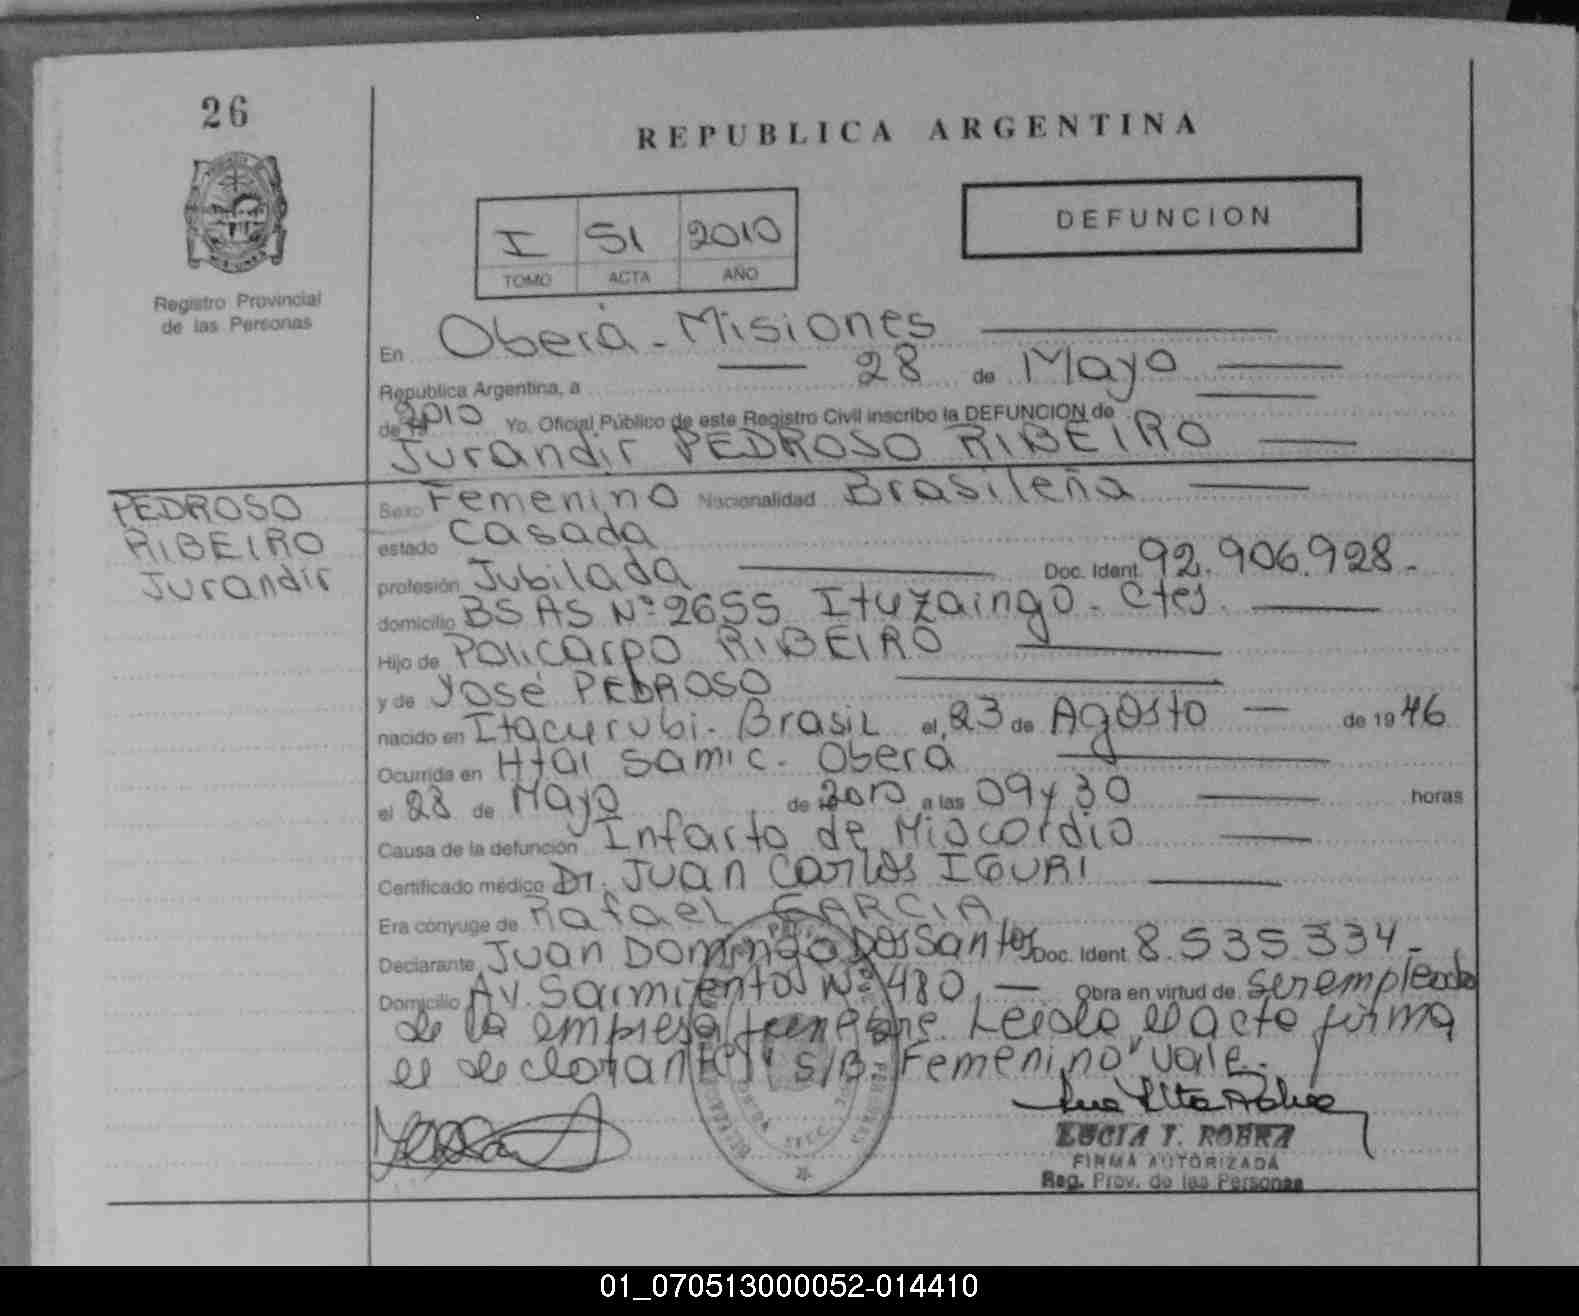 26
REPUBLICA ARGENTINA
Registro Provincial
de las Personas
I 51 2010
TOMO ACTA AÑO
DEFUNCION
En Oberá - Misiones
Republica Argentina, a 28 de Mayo
de 19 2010 Yo. Oficial Público de este Registro Civil inscribo la DEFUNCION de
Jurandir PEDROSO RIBEIRO
PEDROSO
RIBEIRO
Jurandir
Sexo Femenino Nacionalidad Brasileña
estado Casada
profesión Jubilada Doc. Ident. 92.906.928.-
domicilio BS AS Nº 2655 Ituzaingo - Ctes.
Hijo de Policarpo RIBEIRO
y de José PEDROSO
nacido en Itacurubi - Brasil el 23 de Agosto de 1946
Ocurrida en Htal Samic - Oberá
el 28 de Mayo de 2010 a las 09 y 30 horas
Causa de la defunción Infarto de Miocardio
Certificado médico Dr. Juan Carlos IGURI
Era cónyuge de Rafael GARCIA
Declarante Juan Domingo Dos Santos Doc. Ident. 8.535.334.-
Domicilio Av. Sarmientos Nº 480, Obra en virtud de ser empleado
de la empresa funebre. Leida el acta firma
el declarante S/B. Femenino" vale.-
LUCIA T. ROHRA
FIRMA AUTORIZADA
Reg. Prov. de las Personas
01_070513000052-014410